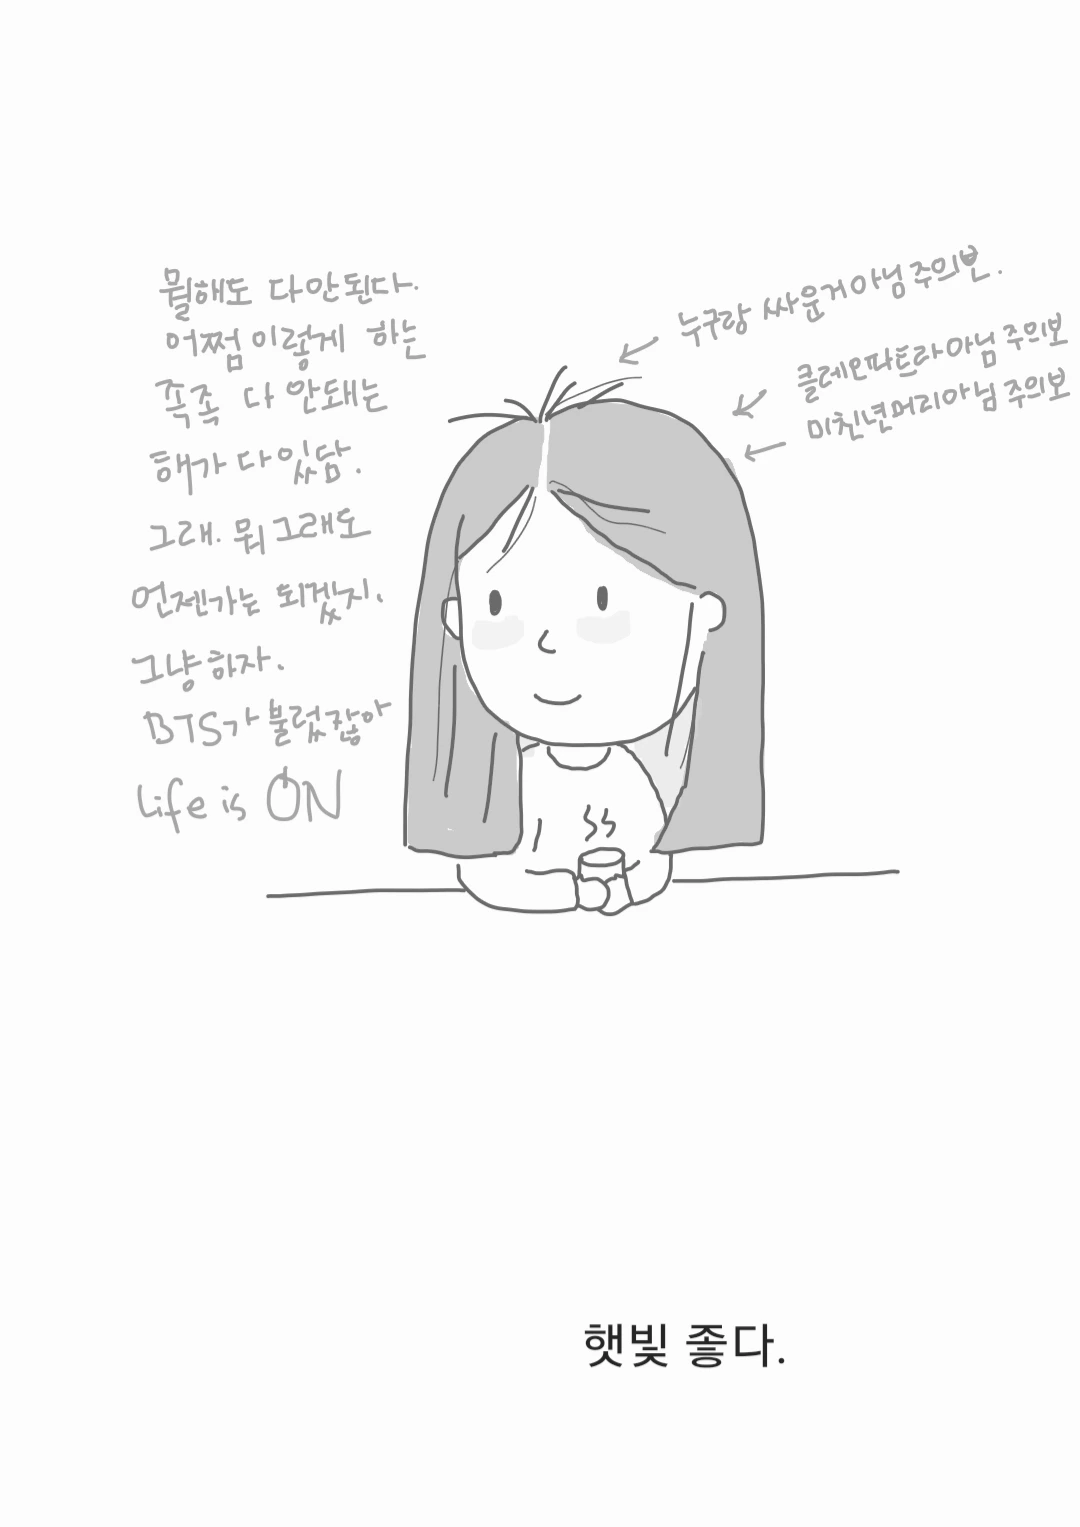 뭘해도 다안된다.
어쩜이렇게 하는
족족 다 안돼는
해가 다있담.
그래. 뭐그래도
언젠가는 되겠지.
그냥하자.
BTS가불렀잖아
Life is ON
누구랑 싸운거아님주의보.
클레오파트라아님주의보
미친년머리아님주의보
햇빛 좋다.